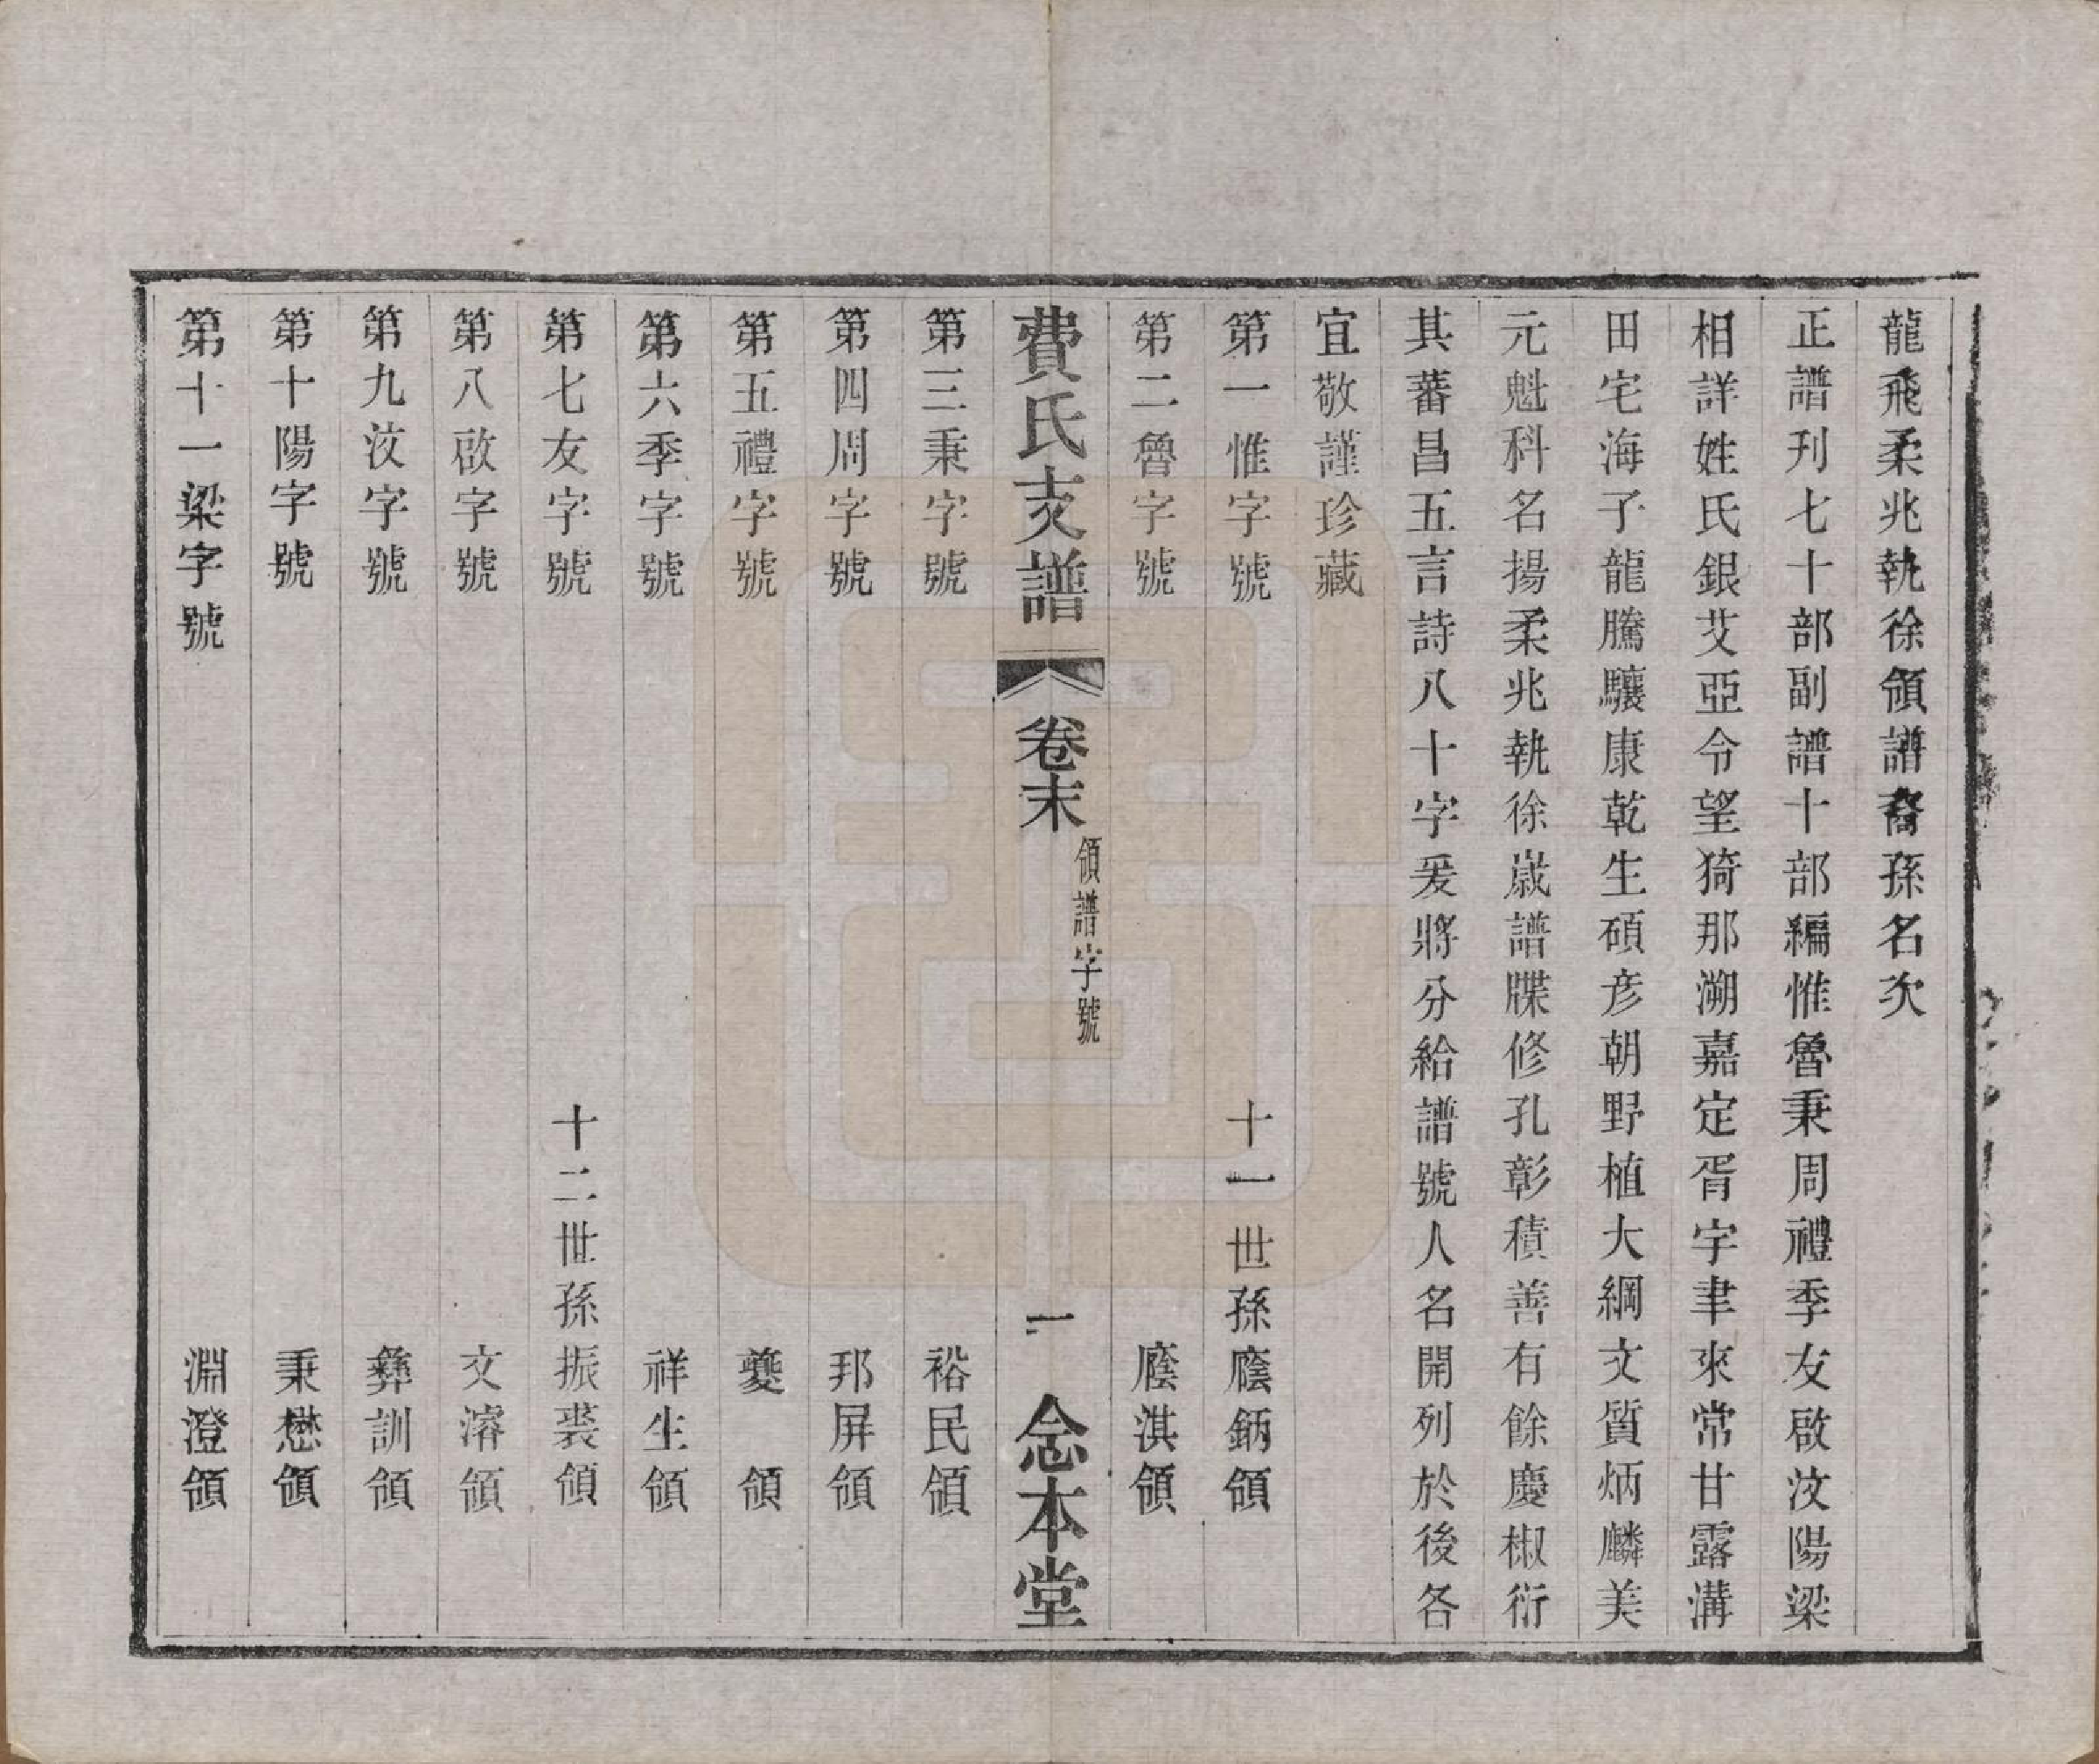 龍飛柔兆執徐領譜裔孫名次
正譜刋七十部副譜十部編惟魯秉周禮季友啟汶陽梁
相詳姓氏銀艾亞令望猗那溯嘉定胥宇聿來常甘露溝
田宅海子龍騰驤康乾生碩彥朝野植大綱文質炳麟美
元魁科名揚柔兆執徐歲譜牒修孔彰積善有餘慶椒衍
其蕃昌五言詩八十字爰將分給譜號人名開列於後各
宜敬謹珍藏
第一惟字號 十一世孫廕鈵領
第二魯字號 廕淇領
費氏支譜 卷末 領譜字號 一 念本堂
第三秉字號 裕民領
第四周字號 邦屏領
第五禮字號 夔領
第六季字號 祥生領
第七友字號 十二世孫振裘領
第八啟字號 文溶領
第九汶字號 彝訓領
第十陽字號 秉懋領
第十一梁字號 淵澄領